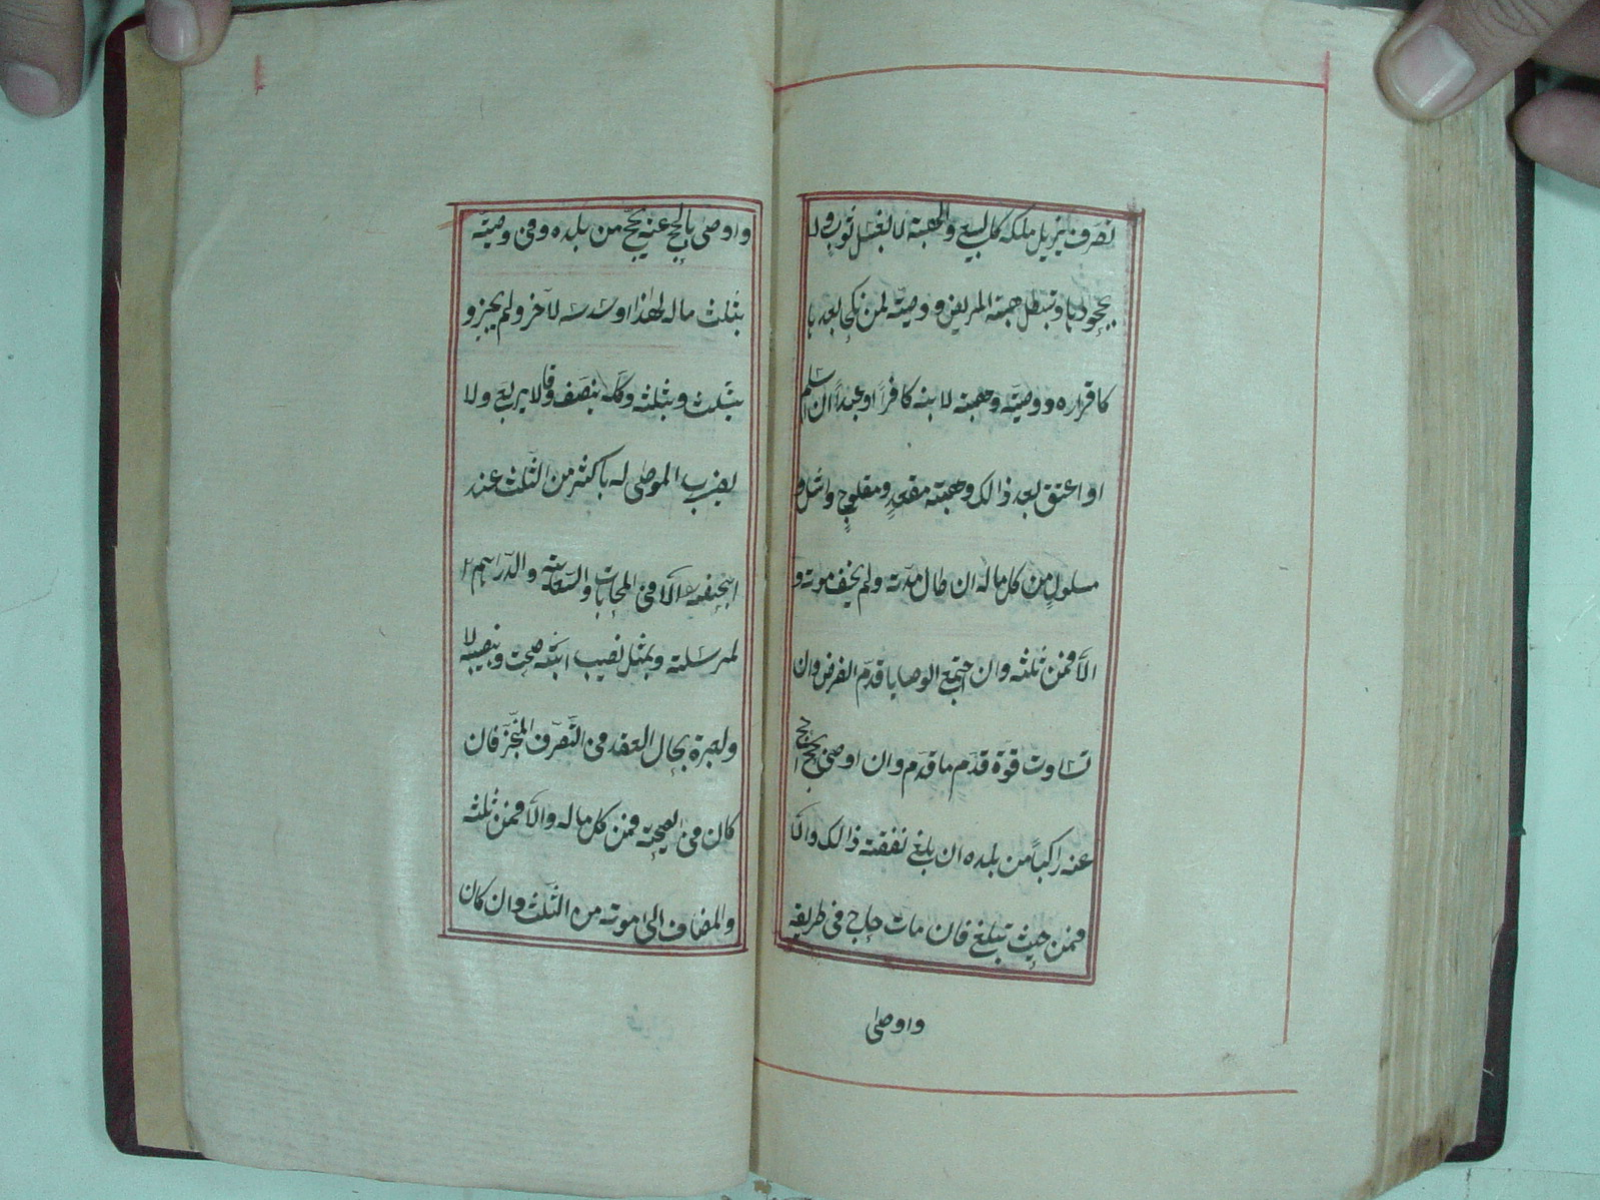 تصرف يزيل ملكه كالبيع والهبة لا بغسل ثوب ولا
بجحودها وتبطل هبة المريض ووصيته لمن نكحها بعدها
كاقراره ووصيته وهبته لابنه كافراً او عبداً ان اسلم
او اعتق بعد ذالك وهبته مقعدٍ ومفلوجٍ واشل و
مسلولٍ من كل ماله ان طال مدته ولم يخف موته و
الّا فمن ثلثه وان اجتمع الوصايا قدّم الفرض وان
تساوت قوة قدّم ما قدّم وان اوصى بحج احج
عنه راكباً من بلده ان بلغ نفقته ذالك والّا
فمن حيث تبلغ فان مات حاج في طريقه
واوصى
واوصى بالحج عنه يحج من بلده وفي وصيته
بثلث ماله لهذا وسدسه لآخر ولم يجيزو
بثلث وبثلثه وكله ينصف وقالا يربع ولا
يضرب الموصى له باكثر من الثلث عند
ابيحنيفة الّا في المحابات والسعاية والدراهم ا
لمرسلة وبمثل نصيب ابنه صحت وبنصيبه لا
ولعبرة بحال العقد في التصرف المنجز فان
كان في الصحة فمن كل ماله والّا فمن ثلثه
والمضاف الى موته من الثلث وان كان